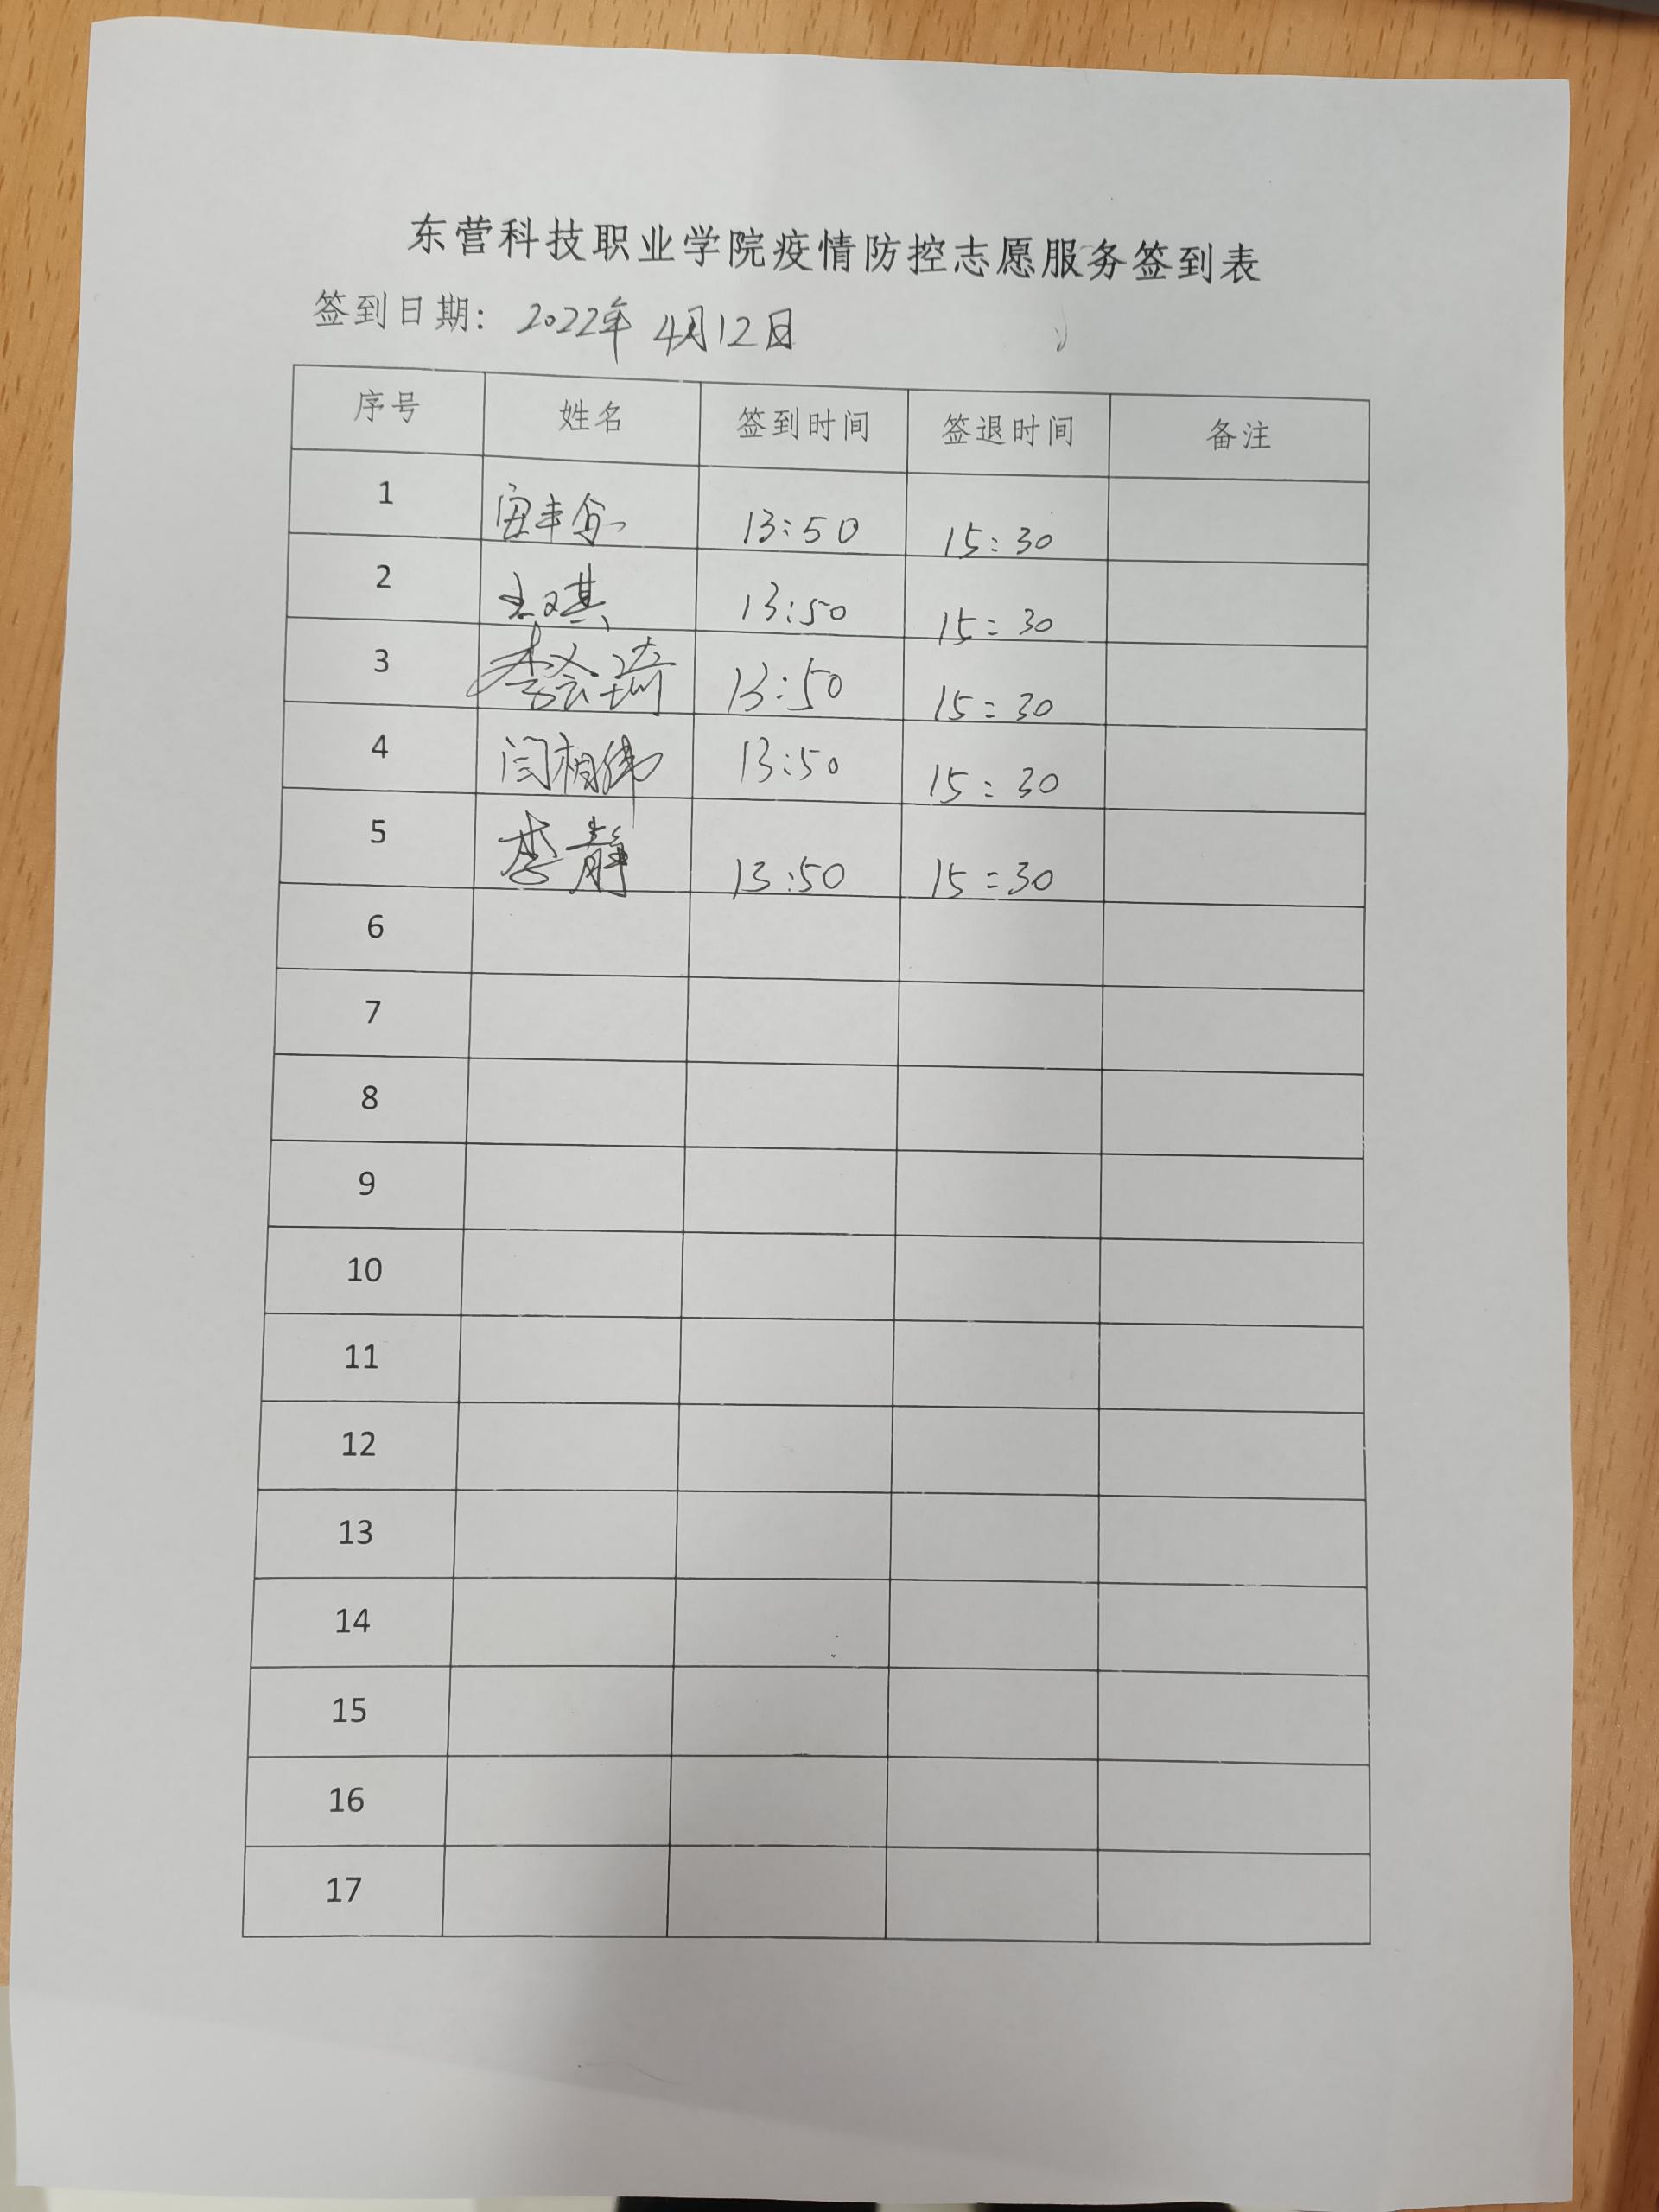 东营科技职业学院疫情防控志愿服务签到表
签到日期: 2022年 4月12日
序号 姓名 签到时间 签退时间 备注
1 13:50 15:30
2 13:50 15:30
3 李会琦 13:50 15:30
4 闫相伟 13:50 15:30
5 李静 13:50 15:30
6
7
8
9
10
11
12
13
14
15
16
17